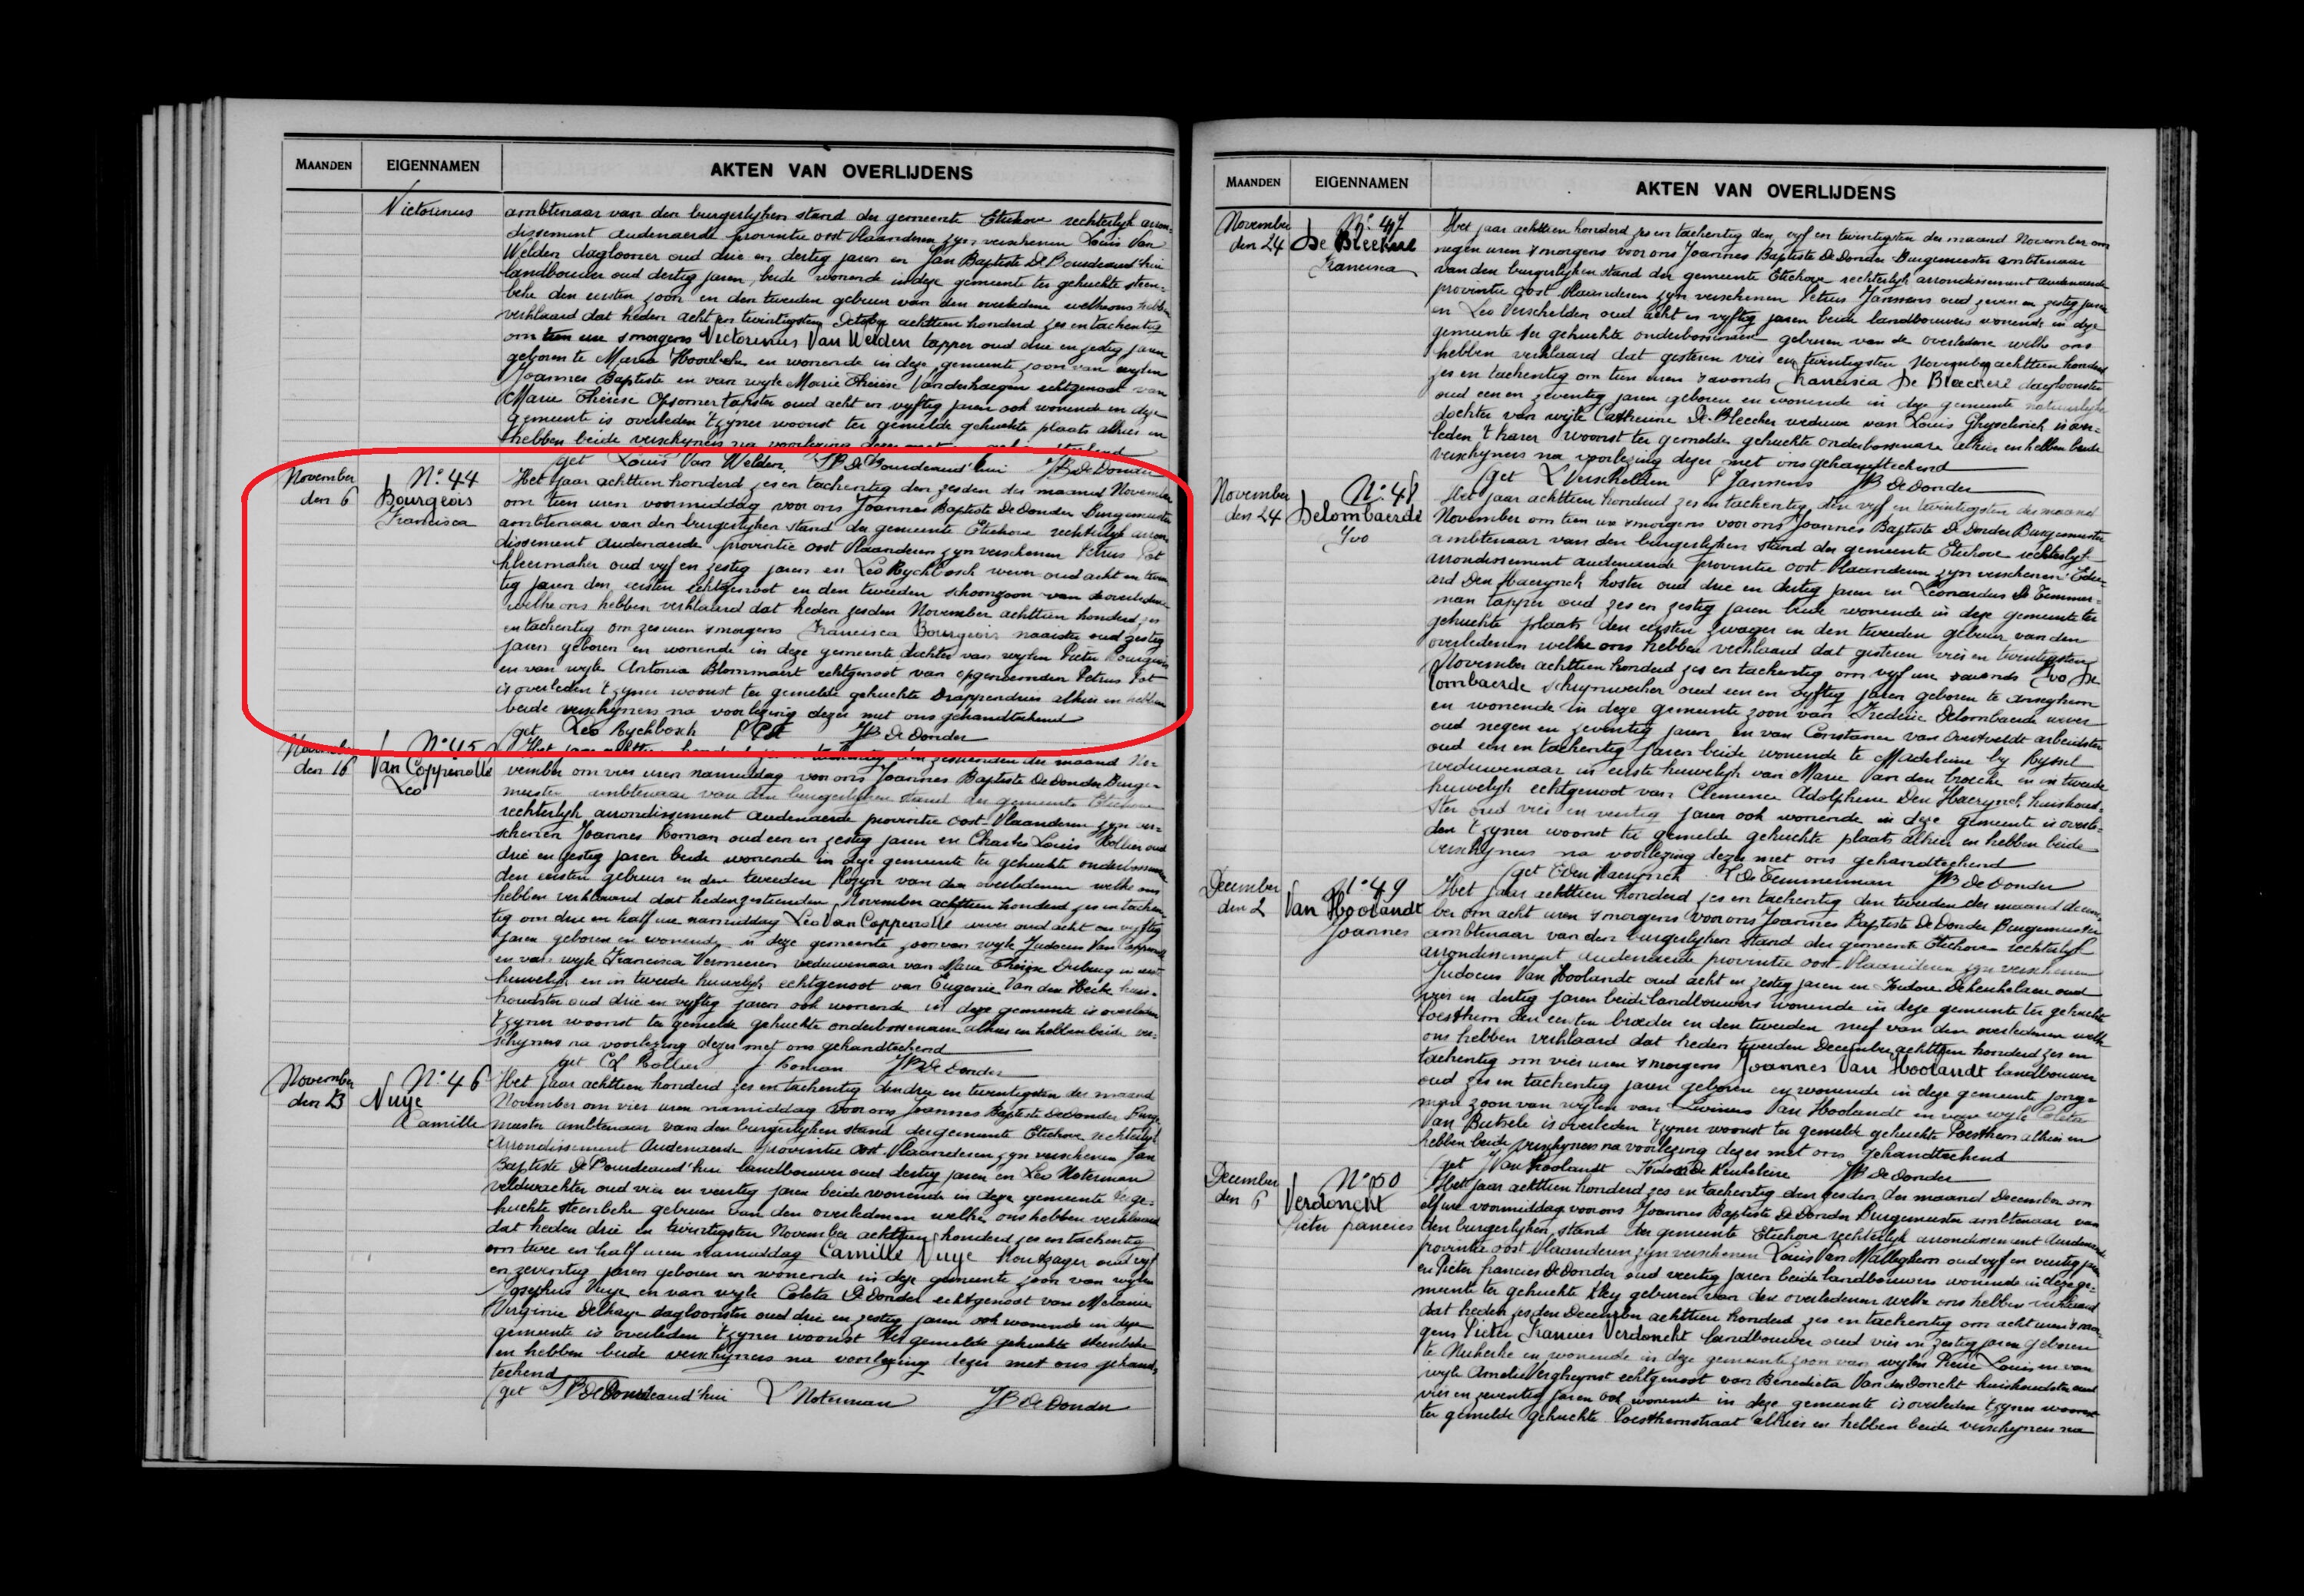 MAANDEN EIGENNAMEN AKTEN VAN OVERLIJDENS
Victorinus ambtenaar van den burgerlyken stand der gemeente Etichove rechterlyk arron-
dissement Audenaerde provintie oost Vlaanderen zyn verschenen Louis Van
Welden daglooner oud drie en dertig jaren en Jan Baptiste De Bourdeaud'hui
landbouwer oud dertig jaren, beide wonende in deze gemeente ter gehuchte steen-
beke den eersten zoon en den tweeden gebuur van den overledene welke ons hebben
verklaard dat heden acht en twintigsten October achttien honderd zes en tachentig
om tien ure smorgens Victorinus Van Welden tapper oud drie en zestig jaren
geboren te Maria Hoorebeke en wonende in deze gemeente zoon van wylen
Joannes Baptiste en van wyle Marie Thérèse Vanderhaegen echtgenoot van
Marie Thérèse Opsomer tapster oud acht en vyftig jaren ook wonende in deze
gemeente is overleden 't zyner woonst ter gemelde gehuchte plaats alhier en
hebben beide verschyners na voorlezing dezer met
get Louis Van Welden JB De Bourdeaud'hui JB De Donder
November den 6
N° 44
Bourgeois
Francisca
Het jaar achttien honderd zes en tachentig den zesden der maand November
om tien uren voormiddag voor ons Joannes Baptiste De Donder Burgemeester
ambtenaar van den burgerlyken stand der gemeente Etichove rechterlyk arron-
dissement Audenaerde provintie oost Vlaanderen zyn verschenen Petrus Pot
kleermaker oud vyf en zestig jaren en Leo Rychbosch wever oud acht en twin-
tig jaren den eersten echtgenoot en den tweeden schoonzoon van de overledene
welke ons hebben verklaard dat heden zesden November achttien honderd zes
en tachentig om zes uren smorgens Francisca Bourgeois naaister oud zestig
jaren geboren en wonende in deze gemeente dochter van wylen Pieter Bourgeois
en van wyle Antonia Blommaert echtgenoot van opgenoemden Petrus Pot
is overleden 't zyner woonst ter gemelde gehuchte Drapprendries alhier en hebben
beide verschyners na voorlezing dezer met ons gehandteekend
get Leo Rychbosch P Pot JB De Donder
November den 16
N° 45
Van Coppenolle
Leo
Het jaar achttien honderd zes en tachentig den zestienden der maand No-
vember om vier uren namiddag voor ons Joannes Baptiste De Donder Burge-
meester ambtenaar van den burgerlyken stand der gemeente Etichove
rechterlyk arrondissement Audenaerde provintie oost-Vlaanderen zyn ver-
schenen Joannes Roman oud een en zestig jaren en Charles Louis Rollier oud
drie en zestig jaren beide wonende in deze gemeente ter gehucht onderbossenare
den eersten gebuur en den tweeden Kozyn van den overledenen welke ons
hebben verklaard dat heden zestienden November achttien honderd zes en tachen-
tig om drie en half ure namiddag Leo Van Coppenolle wever oud acht en vyftig
jaren geboren en wonende in deze gemeente zoon van wyle Judocus Van Coppenolle
en van wyle Francisca Vermeeren weduwenaar van Marie Thérèse Dubucq in eerste
huwelyk en in tweede huwelyk echtgenoot van Eugenie Van den Hecke huis-
houdster oud drie en vyftig jaren ook wonende in deze gemeente is overleden
't zyner woonst ter gemelde gehuchte onderbossenare alhier en hebben beide ver-
schyners na voorlezing dezer met ons gehandteekend
get CL Rollier J Roman JB De Donder
November den 23
N° 46
Nuye
Camille
Het jaar achttien honderd zes en tachentig den drie en twintigsten der maand
November om vier uren namiddag voor ons Joannes Baptiste De Donder Burge-
meester ambtenaar van den burgerlyken stand der gemeente Etichove rechterlyk
Arrondissement Audenaerde provintie oost-Vlaanderen zyn verschenen Jan
Baptiste De Bourdeaud'hui landbouwer oud dertig jaren en Leo Noterman
veldwachter oud vier en veertig jaren beide wonende in deze gemeente ter ge-
huchte steenbeke gebueren van den overledenen welke ons hebben verklaard
dat heden drie en twintigsten November achttien honderd zes en tachentig
om twee en half uren namiddag Camille Nuye houtzager oud vyf
en zeventig jaren geboren en wonende in deze gemeente zoon van wylen
Josephus Nuye en van wyle Coleta De Donder echtgenoot van Melanie
Virginie Delhaye dagloonster oud drie en zestig jaren ook wonende in deze
gemeente is overleden 't zyner woonst ter gemelde gehuchte steenbeke
en hebben beide verschyners na voorlezing dezer met ons gehand-
teekend
get JB De Bourdeaud'hui L Noterman JB De Donder
MAANDEN EIGENNAMEN AKTEN VAN OVERLIJDENS
November den 24
N° 47
De Bleekere
Francisca
Het jaar achttien honderd zes en tachentig den vyf en twintigsten der maand November om
negen uren smorgens voor ons Joannes Baptiste De Donder Burgemeester ambtenaar
van den burgerlyken stand der gemeente Etichove rechterlyk arrondissement Audenaerde
provintie oost Vlaanderen zyn verschenen Petrus Janssens oud zeven en zestig jaren
en Leo Verschelden oud acht en vyftig jaren beide landbouwers wonende in deze
gemeente ter gehuchte onderbossenare gebueren van de overledene welke ons
hebben verklaard dat gisteren vier en twintigsten November achttien honderd
zes en tachentig om tien uren savonds Francisca De Bleekere dagloonster
oud een en zeventig jaren geboren en wonende in deze gemeente natuurlyke
dochter van wyle Catherine De Bleecker weduwe van Louis Ghyselinck is over-
leden 't harer woonst ter gemelde gehuchte onderbossenare alhier en hebben beide
verschyners na voorlezing dezer met ons gehandteekend
get L Verschelden P Janssens JB De Donder
November den 24
N° 48
Delombaerde
Ivo
Het jaar achttien honderd zes en tachentig den vyf en twintigsten der maand
November om tien ure smorgens voor ons Joannes Baptiste De Donder Burgemeester
ambtenaar van den burgerlyken stand der gemeente Etichove rechterlyk
arrondissement Audenaerde provintie oost-Vlaanderen zyn verschenen Edu-
ard Den Haerynck koster oud drie en dertig jaren en Leonardus De Temmer-
man tapper oud zes en zestig jaren beide wonende in deze gemeente ter
gehuchte plaats den eersten zwager en den tweeden gebuur van den
overledenen welke ons hebben verklaard dat gisteren vier en twintigsten
November achttien honderd zes en tachentig om vyf ure savonds Ivo De
lombaerde schrynwerker oud een en vyftig jaren geboren te Anseghem
en wonende in deze gemeente zoon van Frederic Delombaerde wever
oud negen en zeventig jaren en van Constance Van Overtveldt arbeidster
oud een en tachentig jaren beide wonende te Madeleine by Ryssel
weduwenaar in eerste huwelyk van Marie Van den broecke en in tweede
huwelyk echtgenoot van Clemence Adolphine Den Haerynck huishoud-
ster oud vier en veertig jaren ook wonende in deze gemeente is overle-
den 't zyner woonst ter gemelde gehuchte plaats alhier en hebben beide
verschyners na voorlezing dezer met ons gehandteekend
get E Den Haerynck L De Temmerman JB De Donder
December den 2
N° 49
Van Hoolandt
Joannes
Het jaar achttien honderd zes en tachentig den tweeden der maand decem-
ber om acht uren smorgens voor ons Joannes Baptiste De Donder Burgemeester
ambtenaar van den burgerlyken stand der gemeente Etichove rechterlyk
arrondissement Audenaerde provintie oost-Vlaanderen zyn verschenen
Judocus Van Hoolandt oud acht en zestig jaren en Isidore Dekeukelaere oud
vier en dertig jaren beide landbouwers wonende in deze gemeente ter gehuchte
Poesthem den eersten broeder en den tweeden neef van den overledenen welke
ons hebben verklaard dat heden tweeden December achttien honderd zes en
tachentig om vier uren smorgens Joannes Van Hoolandt landbouwer
oud zes en tachentig jaren geboren en wonende in deze gemeente jong-
man zoon van wylen van Livinus Van Hoolandt en van wyle Coleta
Van Butsele is overleden 't zyner woonst ter gemelde gehuchte Poesthem alhier en
hebben beide verschyners na voorlezing dezer met ons gehandteekend
get J Van Hoolandt Isidore De Keukeleire JB De Donder
December den 6
N° 50
Verdonckt
Pieter francies
Het jaar achttien honderd zes en tachentig den zesden der maand December om
elf ure voormiddag voor ons Joannes Baptiste De Donder Burgemeester ambtenaar van
den burgerlyken stand der gemeente Etichove rechterlyk arrondissement Audenaerde
provintie oost Vlaanderen zyn verschenen Louis Van Malleghem oud vyf en veertig jaren
en Pieter francies De Donder oud veertig jaren beide landbouwers wonende in deze ge-
meente ter gehuchte Kley gebueren van den overledenen welke ons hebben verklaard
dat heden zesden December achttien honderd zes en tachentig om acht uren smor-
gens Pieter Francies Verdonckt landbouwer oud vier en zestig jaren geboren
te Nukerke en wonende in deze gemeente zoon van wylen Pierre Louis en van
wyle Amelie Vergheynst echtgenoot van Benedicta Van der Donckt huishoudster oud
vier en zeventig jaren ook wonende in deze gemeente is overleden 't zyner woonst
ter gemelde gehuchte Poesthemstraat alhier en hebben beide verschyners na